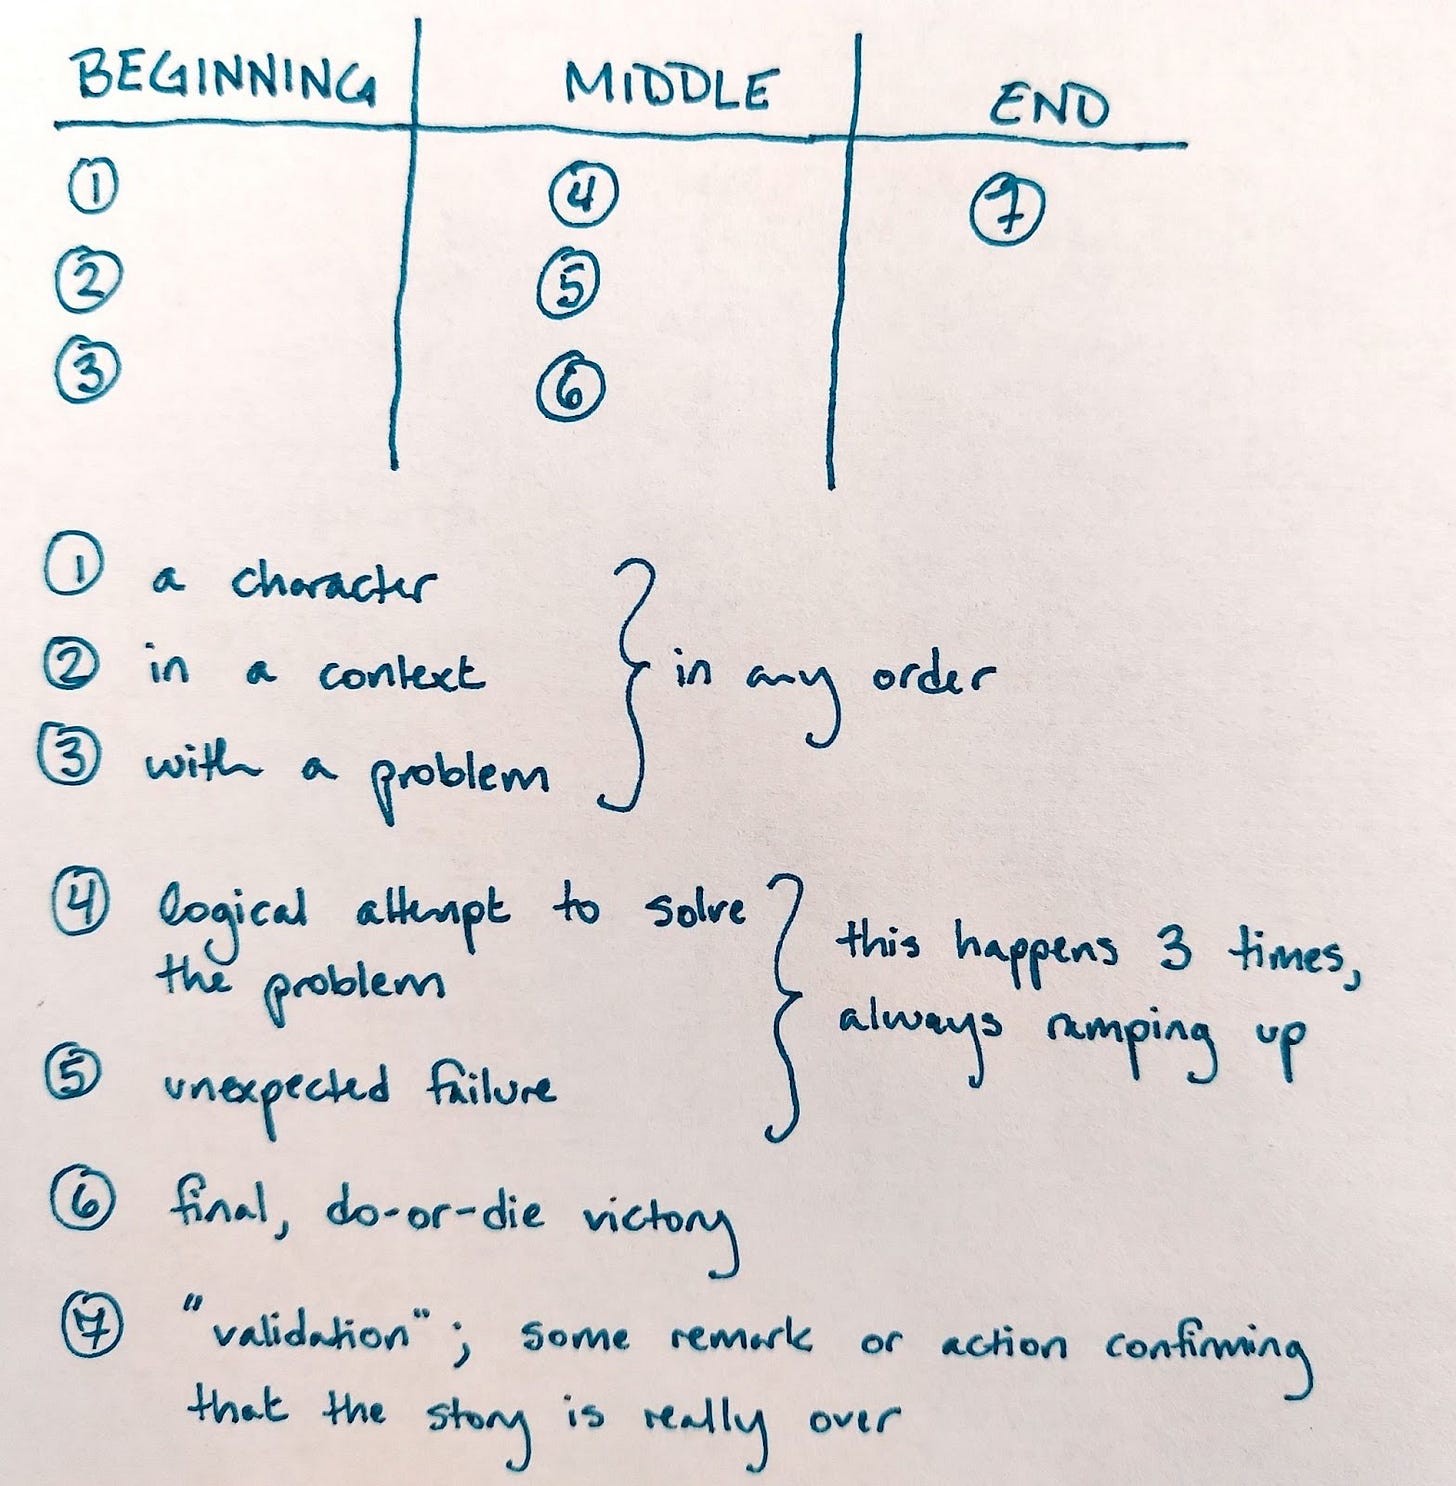 BEGINNING MIDDLE END
① ④ ⑦
② ⑤
③ ⑥
① a character
② in a context
③ with a problem
in any order
④ logical attempt to solve
the problem
⑤ unexpected failure
this happens 3 times,
always ramping up
⑥ final, do-or-die victory
⑦ "validation"; some remark or action confirming
that the story is really over